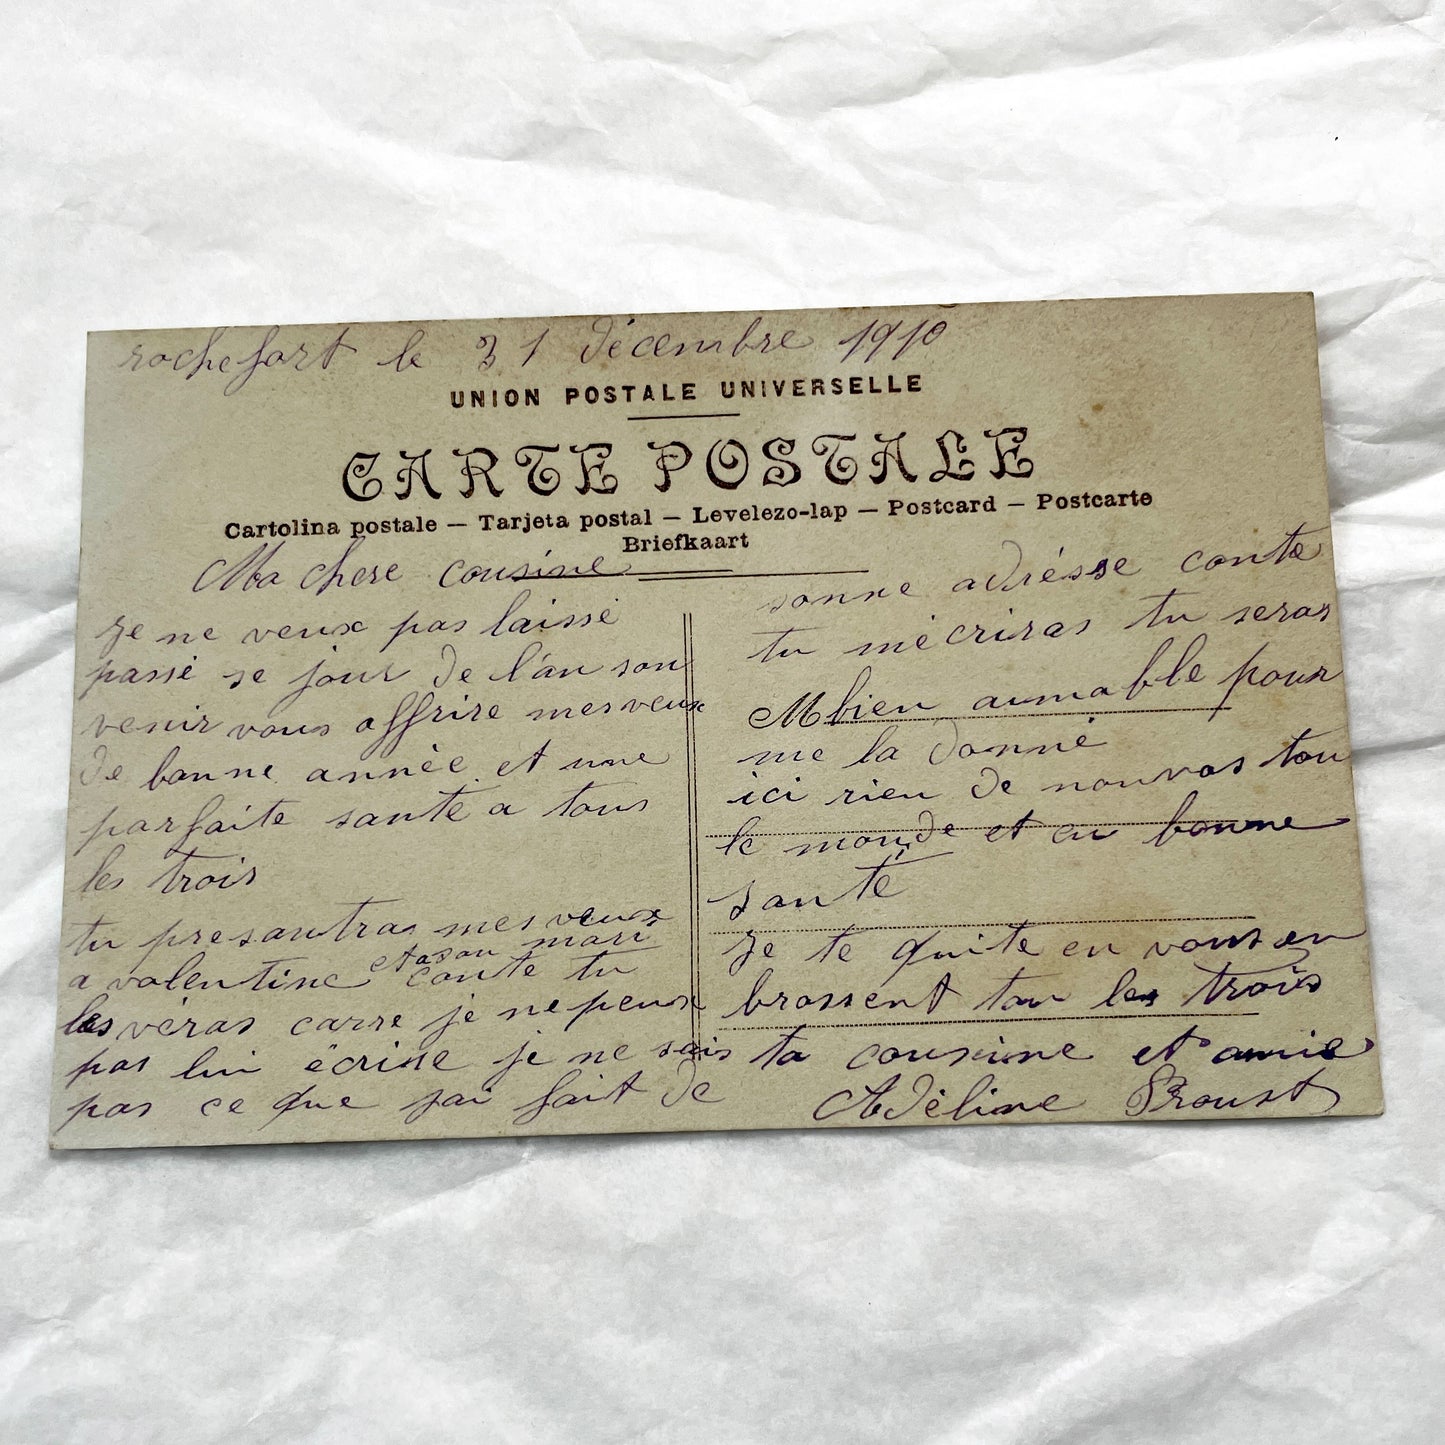 rochefort le 31 décembre 1910
UNION POSTALE UNIVERSELLE
CARTE POSTALE
Cartolina postale — Tarjeta postal — Levelezo-lap — Postcard — Postcarte
Briefkaart
Ma chere cousine
Je ne veux pas laissé
passé se jour de l'an san
venir vous offrire mes veux
de bonne année et une
parfaite santé a tous
les trois
tu presantras mes veux
et a son mari
a valentine conte tu
les véras carre je ne peux
pas lui écrire je ne sais
pas ce que jai fait de
sonne adrésse conte
tu mécriras tu seras
bien aumabble pour
me la donné
ici rien de nouvas tou
le monde et en bonne
santé
Je te quite en vous en
brassent tou les trois
ta cousine et amie
Adéline Proust